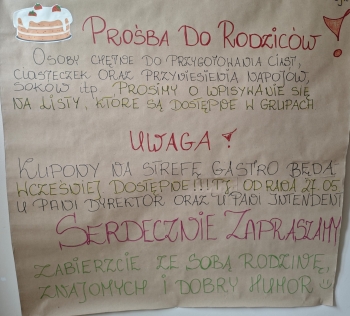 Prośba Do Rodziców!
Osoby chętne do przygotowania ciast,
ciasteczek oraz przyniesienia napojów,
soków itp. Prosimy o wpisywanie się
na listy, które są dostępne w grupach.
UWAGA!
Kupony na strefę gastro będą
wcześniej dostępne!!! Tj. od rana 27.05
u Pani Dyrektor oraz u Pani Intendent
Serdecznie Zapraszamy
Zabierzcie ze sobą rodzinę,
znajomych i dobry humor